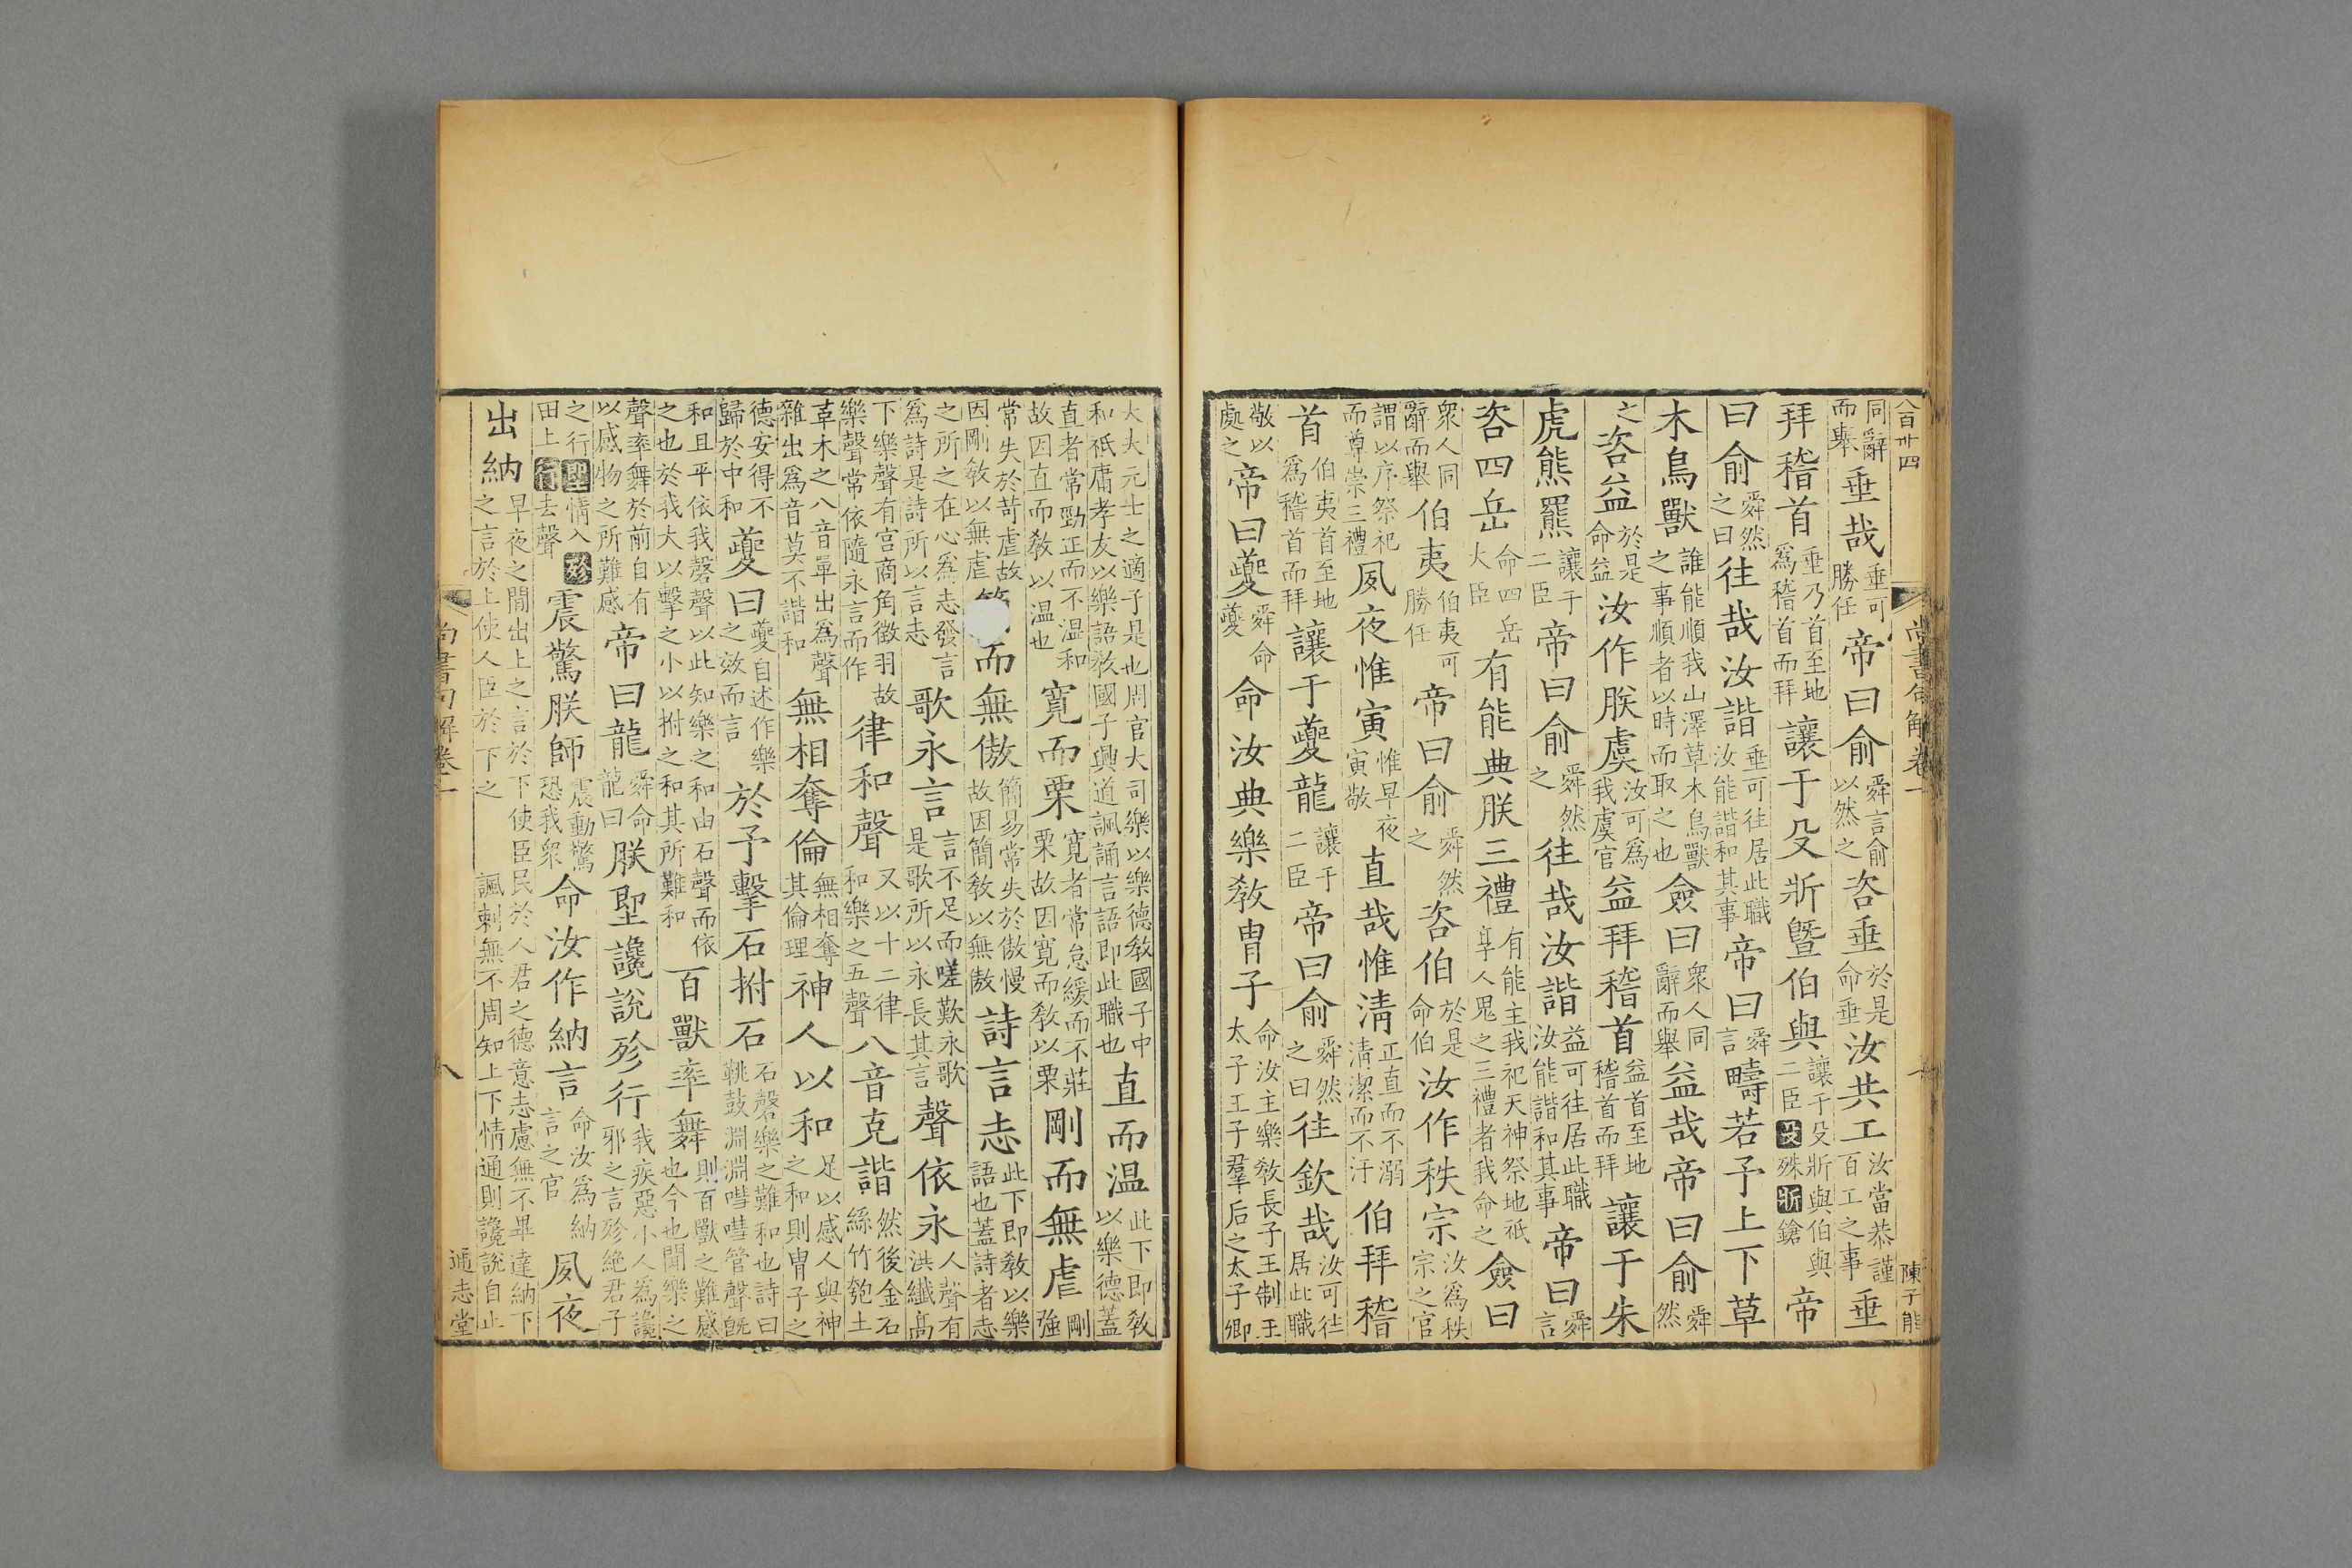 八百卅四
尚書句解卷一
陳子能
同辭而舉垂哉垂可勝任帝曰俞舜言俞以然之咨垂於是命垂汝共工汝當恭謹百工之事垂
拜稽首垂乃首至地爲稽首而拜讓于殳斨曁伯與讓于殳斨與伯與二臣殳殊斨鎗帝
曰俞舜然之曰往哉汝諧垂可往居此職汝能諧和其事帝曰舜言疇若予上下草
木鳥獸誰能順我山澤草木鳥獸之事順者以時而取之也僉曰衆人同辭而舉益哉帝曰俞舜然
之咨益於是命益汝作朕虞汝可爲我虞官益拜稽首益首至地稽首而拜讓于朱
虎熊羆讓于二臣帝曰俞舜然之往哉汝諧益可往居此職汝能諧和其事帝曰舜言
咨四岳命四岳大臣有能典朕三禮有能主我祀天神祭地祇享人鬼之三禮者我命之僉曰
衆人同辭而舉伯夷伯夷可勝任帝曰俞舜然之咨伯於是命伯汝作秩宗汝爲秩宗之官
謂以序祭祀而尊崇三禮夙夜惟寅惟早夜寅敬直哉惟淸正直而不溺清潔而不汙伯拜稽
首伯夷首至地爲稽首而拜讓于夔龍讓于二臣帝曰俞舜然之曰往欽哉汝可往居此職
敬以處之帝曰夔舜命夔命汝典樂教胄子命汝主樂敎長子王制王太子王子羣后之太子卿
大夫元士之適子是也周官大司樂以樂德敎國子中和祇庸孝友以樂語敎國子興道諷誦言語即此職也直而温此下即敎以樂德蓋
直者常勁正而不温和故因直而敎以温也寬而栗寬者常怠緩而不莊栗故因寬而敎以栗剛而無虐剛強
常失於苛虐故因剛敎以無虐而無傲簡易常失於傲慢故因簡敎以無傲詩言志此下即敎以樂語也蓋詩者志
之所之在心爲志發言爲詩是詩所以言志歌永言言不足而嗟歎永歌是歌所以永長其言聲依永人聲有洪纖高
下樂聲有宮商角徵羽故樂聲常依隨永言而作律和聲又以十二律和樂之五聲八音克諧然後金石絲竹匏土
革木之八音單出爲聲雜出爲音莫不諧和無相奪倫無相奪其倫理神人以和足以感人與神之和則胄子之
德安得不歸於中和夔曰夔自述作樂之效而言於予擊石拊石石磬樂之難和也詩曰鞉鼓淵淵嘒嘒管聲旣
和且平依我磬聲以此知樂之和由石聲而依之也於我大以擊之小以拊之和其所難和百獸率舞則百獸之難感也今也聞樂之
聲率舞於前自有以感物之所難感帝曰龍舜命龍曰朕堲讒說殄行我疾惡小人爲讒邪之言殄絶君子
之行堲情入殄田上行去聲震驚朕師震動驚恐我衆命汝作納言命汝爲納言之官夙夜
出納早夜之間出上之言於下使臣民於人君之德意志慮無不畢達納下之言於上使人臣於下之諷刺無不周知上下情通則讒說自止
尚書句解卷一
八
通志堂